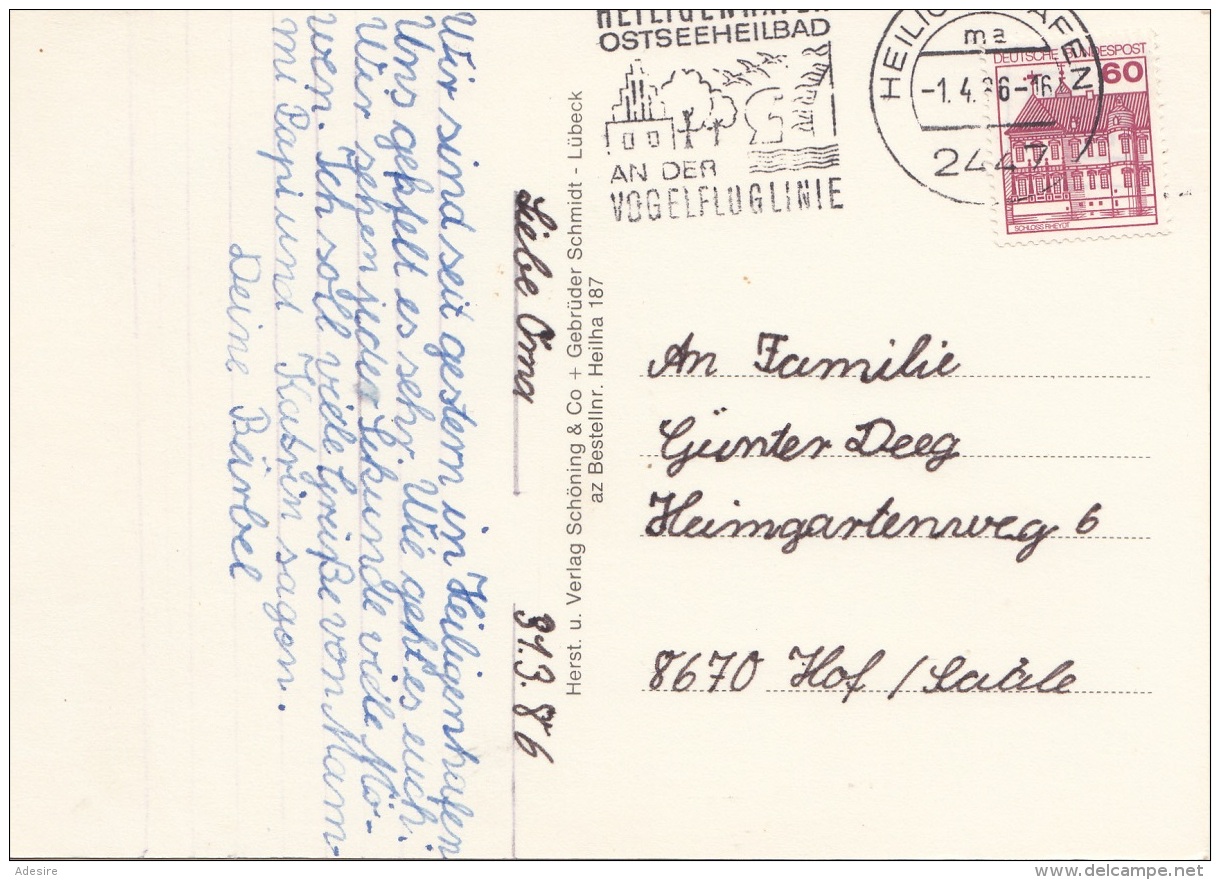 Liebe Oma 31.3.86
Wir sind seit gestern in Heiligenhafen
Uns gefählt es sehr. Wie geht es euch.
Wir sehen jede Sekunde viele Mö-
wen. Ich soll viele Grüße von Mam-
mi Papi und Katrin sagen.
Deine Bärbel
Herst. u. Verlag Schöning & Co + Gebrüder Schmidt - Lübeck
az Bestellnr. Heilha 187
HEILIGENHAFEN
OSTSEEHEILBAD
AN DER
VOGELFLUGLINIE
HEILIGENHAFEN
ma
-1.4.86-16
2447
DEUTSCHE BUNDESPOST
60
SCHLOSS RHEYDT
An Familie
Günter Deeg
Heimgartenweg 6
8670 Hof / Saale
Adesire
delcampe.net